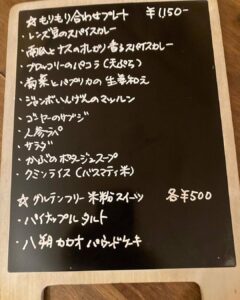 ☆もりもり合わせプレート ¥1,150-
・レンズ豆のスパイスカレー
・南瓜とナスのオレガノ香るスパイスカレー
・ブロッコリーのパコラ（天ぷら）
・菊菜とパプリカの生姜和え
・ジャンボいんげんのマッルン
・ゴーヤーのサブジ
・人参ラペ
・サラダ
・かぶのポタージュスープ
・クミンライス（バスマティ米）
☆グルテンフリー米粉スイーツ 各¥500
・パイナップルタルト
・八朔カカオパウンドケーキ